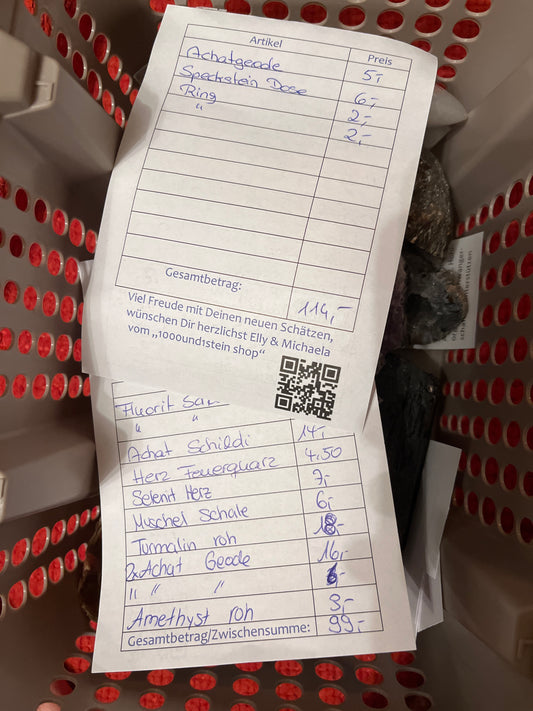 Artikel Preis
Achatgeode 5,-
Speckstein Dose 6,-
Ring 2,-
" 2,-
Gesamtbetrag: 114,-
Viel Freude mit Deinen neuen Schätzen,
wünschen Dir herzlichst Elly & Michaela
vom „1000und1stein shop"
Fluorit
" " 14,-
Achat Schildi 4,50
Herz Feuerquarz 7,-
Selenit Herz 6,-
Muschel Schale 18,-
Turmalin roh 16,-
2x Achat Geode
" " "
Amethyst roh 9,-
Gesamtbetrag/Zwischensumme: 99,-